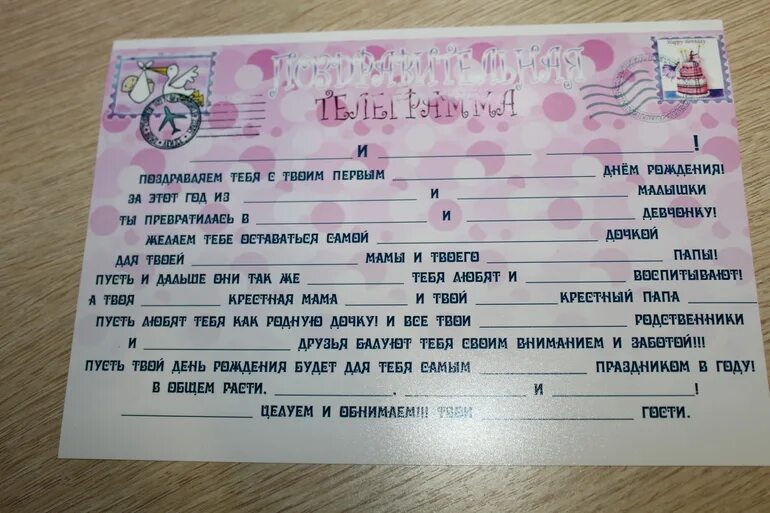 Happy Birthday
ПОЗДРАВИТЕЛЬНАЯ
ТЕЛЕГРАММА
____________ И ____________ ____________!
ПОЗДРАВЛЯЕМ ТЕБЯ С ТВОИМ ПЕРВЫМ ____________ ДНЁМ РОЖДЕНИЯ!
ЗА ЭТОТ ГОД ИЗ ____________ И ____________ МАЛЫШКИ
ТЫ ПРЕВРАТИЛАСЬ В ____________ И ____________ ДЕВЧОНКУ!
ЖЕЛАЕМ ТЕБЕ ОСТАВАТЬСЯ САМОЙ ____________ ДОЧКОЙ
ДЛЯ ТВОЕЙ ____________ МАМЫ И ТВОЕГО ____________ ПАПЫ!
ПУСТЬ И ДАЛЬШЕ ОНИ ТАК ЖЕ ____________ ТЕБЯ ЛЮБЯТ И ____________ ВОСПИТЫВАЮТ!
А ТВОЯ ____________ КРЕСТНАЯ МАМА ______ И ТВОЙ ____________ КРЕСТНЫЙ ПАПА ______
ПУСТЬ ЛЮБЯТ ТЕБЯ КАК РОДНУЮ ДОЧКУ! И ВСЕ ТВОИ ____________ РОДСТВЕННИКИ
И ____________ ДРУЗЬЯ БАЛУЮТ ТЕБЯ СВОИМ ВНИМАНИЕМ И ЗАБОТОЙ!!!
ПУСТЬ ТВОЙ ДЕНЬ РОЖДЕНИЯ БУДЕТ ДЛЯ ТЕБЯ САМЫМ ____________ ПРАЗДНИКОМ В ГОДУ!
В ОБЩЕМ РАСТИ, ____________, ____________ И ____________!
____________ ЦЕЛУЕМ И ОБНИМАЕМ!!! ТВОИ ____________ ГОСТИ.